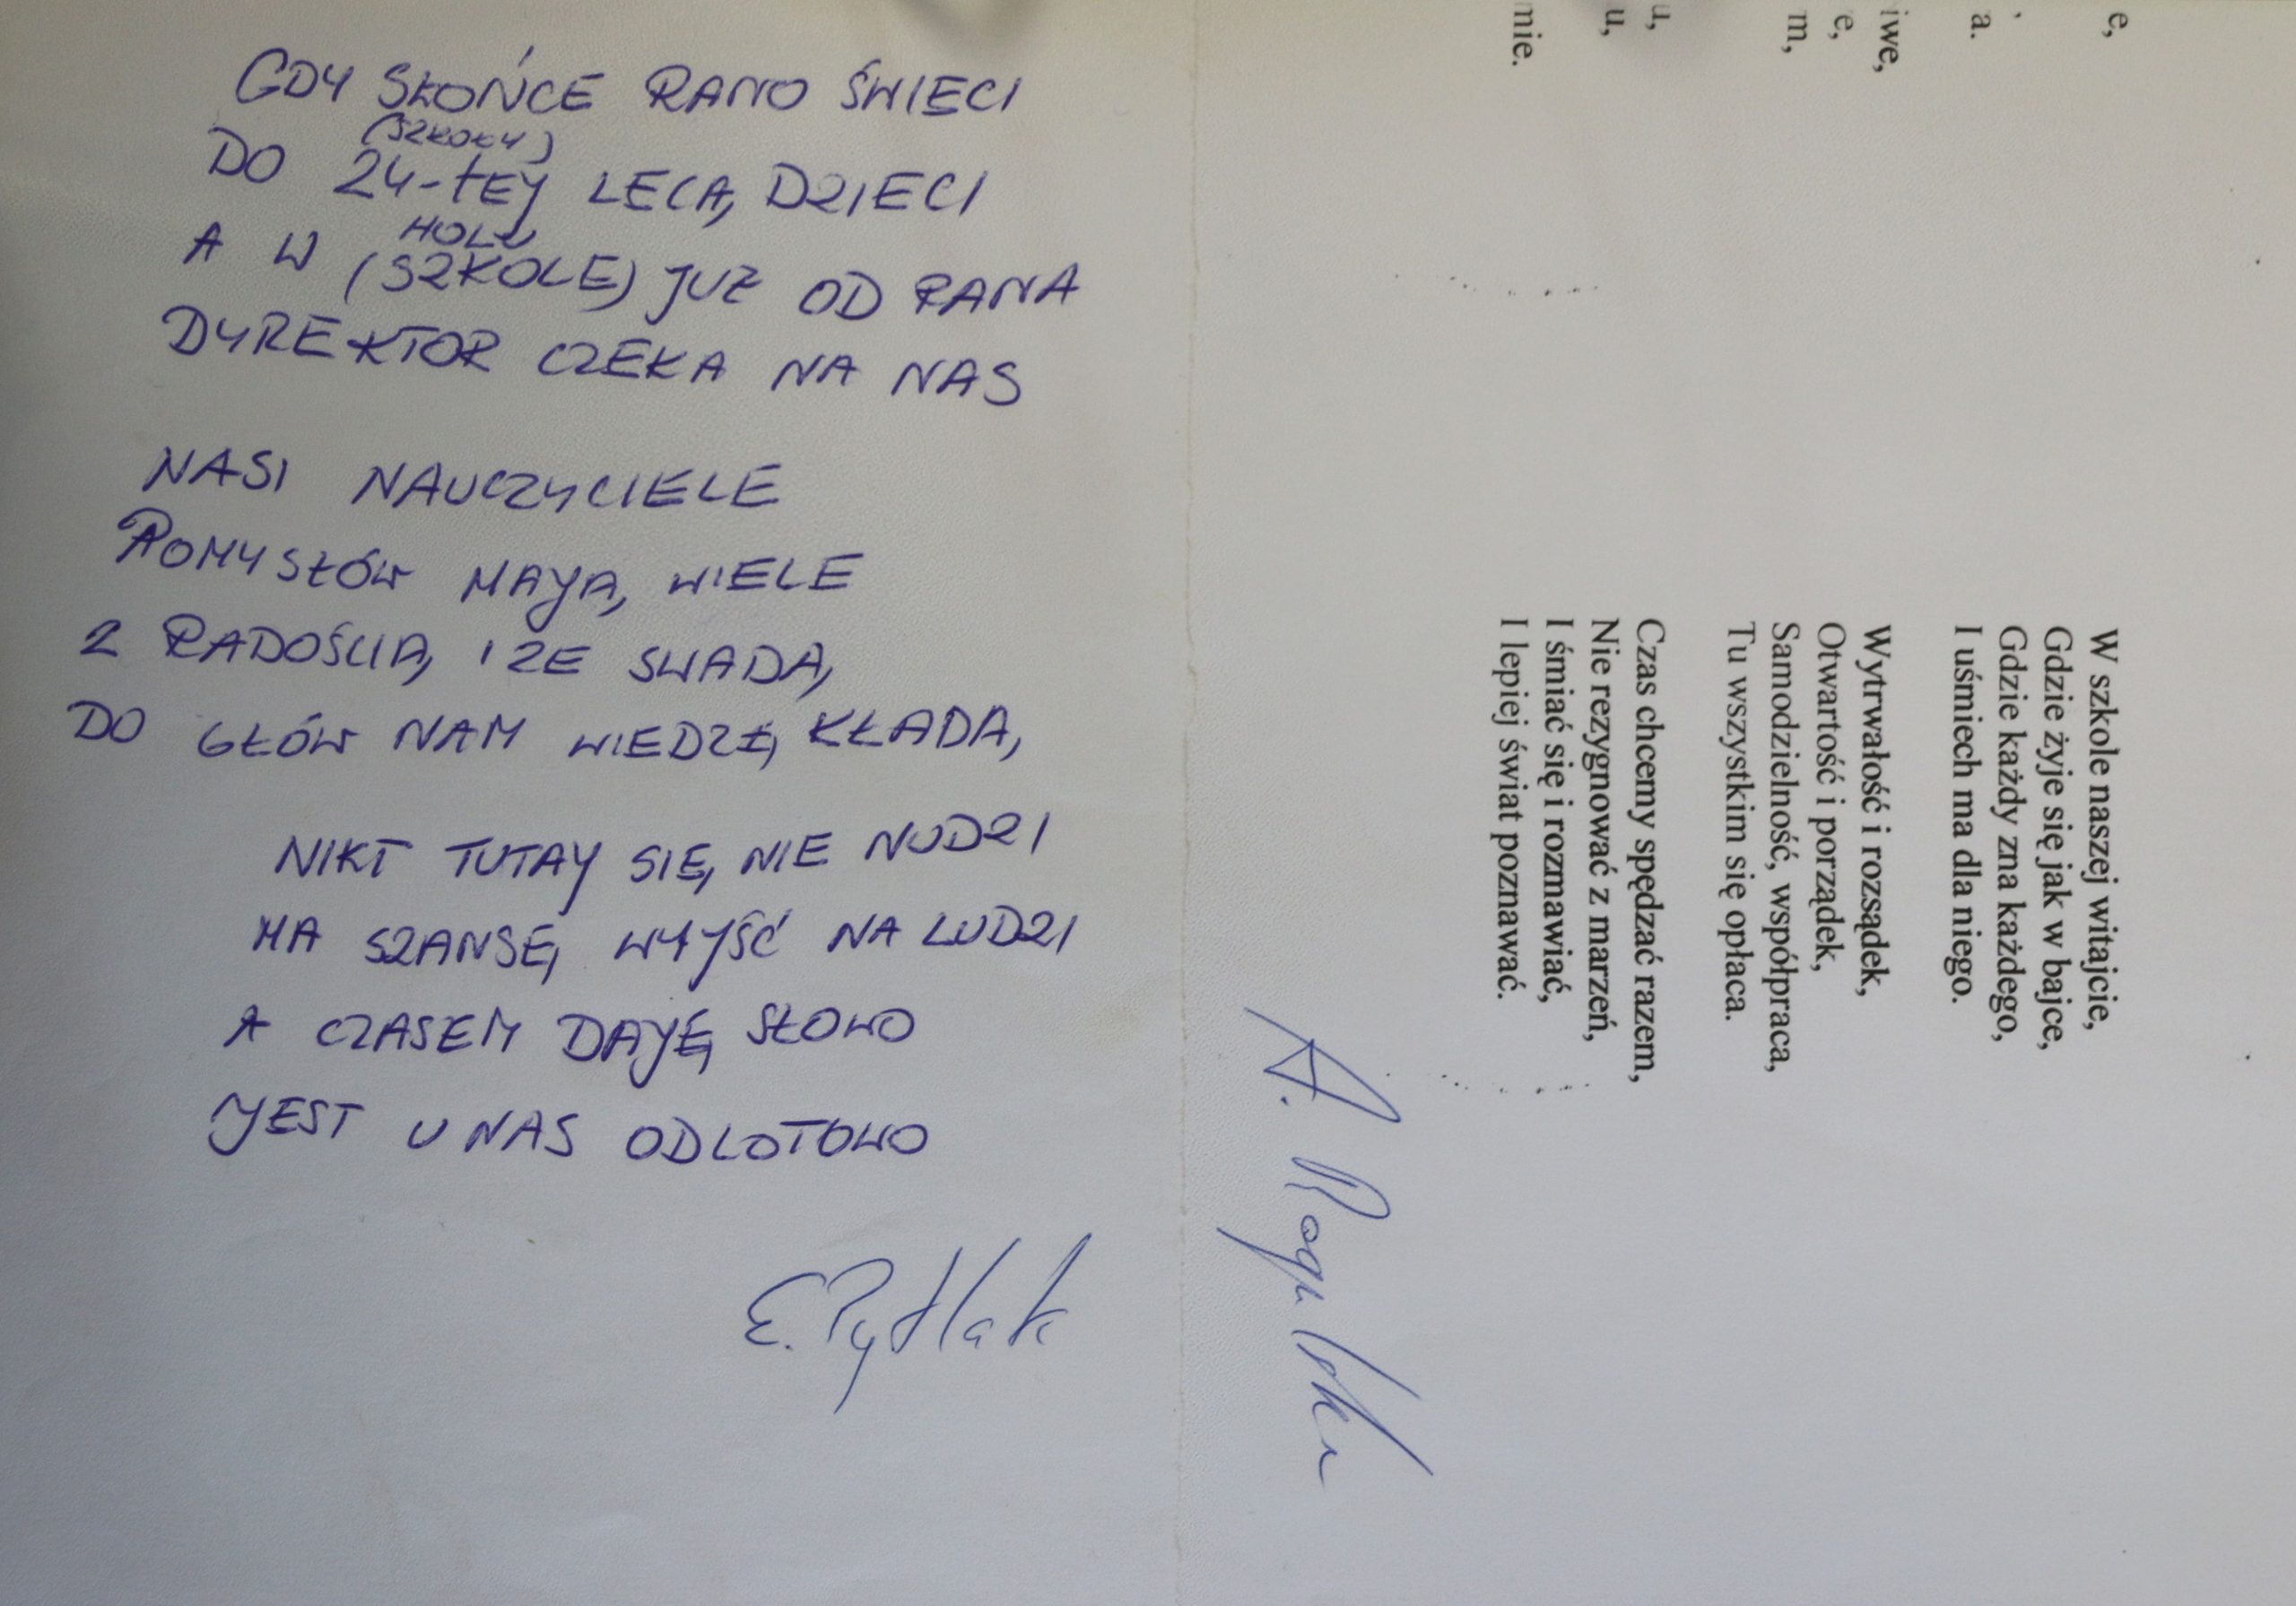 GDY SŁOŃCE RANO ŚWIECI
(SZKOŁY)
DO 24-TEJ LECĄ DZIECI
HOLU
A W (SZKOLE) JUŻ OD RANA
DYREKTOR CZEKA NA NAS
NASI NAUCZYCIELE
POMYSŁÓW MAJĄ WIELE
Z RADOŚCIĄ I ZE SWADĄ
DO GŁÓW NAM WIEDZĘ KŁADĄ
NIKT TUTAJ SIĘ NIE NUDZI
MA SZANSĘ WYJŚĆ NA LUDZI
A CZASEM DAJĘ SŁOWO
JEST U NAS ODLOTOWO
E. Pytlak
W szkole naszej witajcie,
Gdzie żyje się jak w bajce,
Gdzie każdy zna każdego,
I uśmiech ma dla niego.
Wytrwałość i rozsądek,
Otwartość i porządek,
Samodzielność, współpraca,
Tu wszystkim się opłaca.
Czas chcemy spędzać razem,
Nie rezygnować z marzeń,
I śmiać się i rozmawiać,
I lepiej świat poznawać.
e,
,
a.
iwe,
e,
m,
u,
u,
mie.